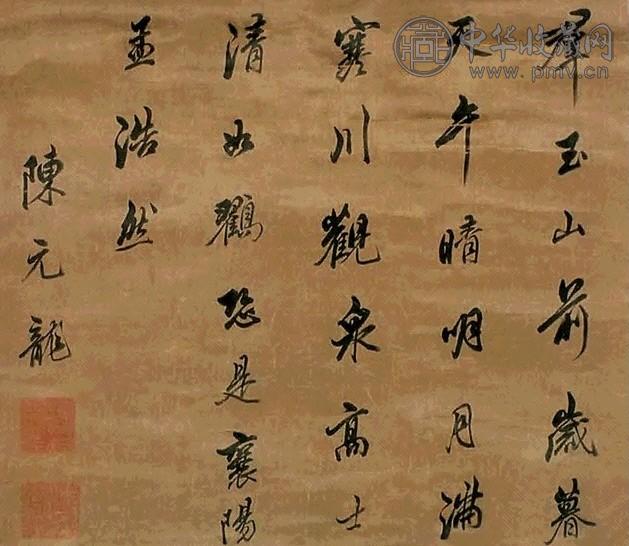 羣玉山前歲暮
天乍晴明月滿
寒川觀泉高士
清如鸖恐是襄陽
孟浩然
陳元龍
中华收藏网
www.pmv.cn